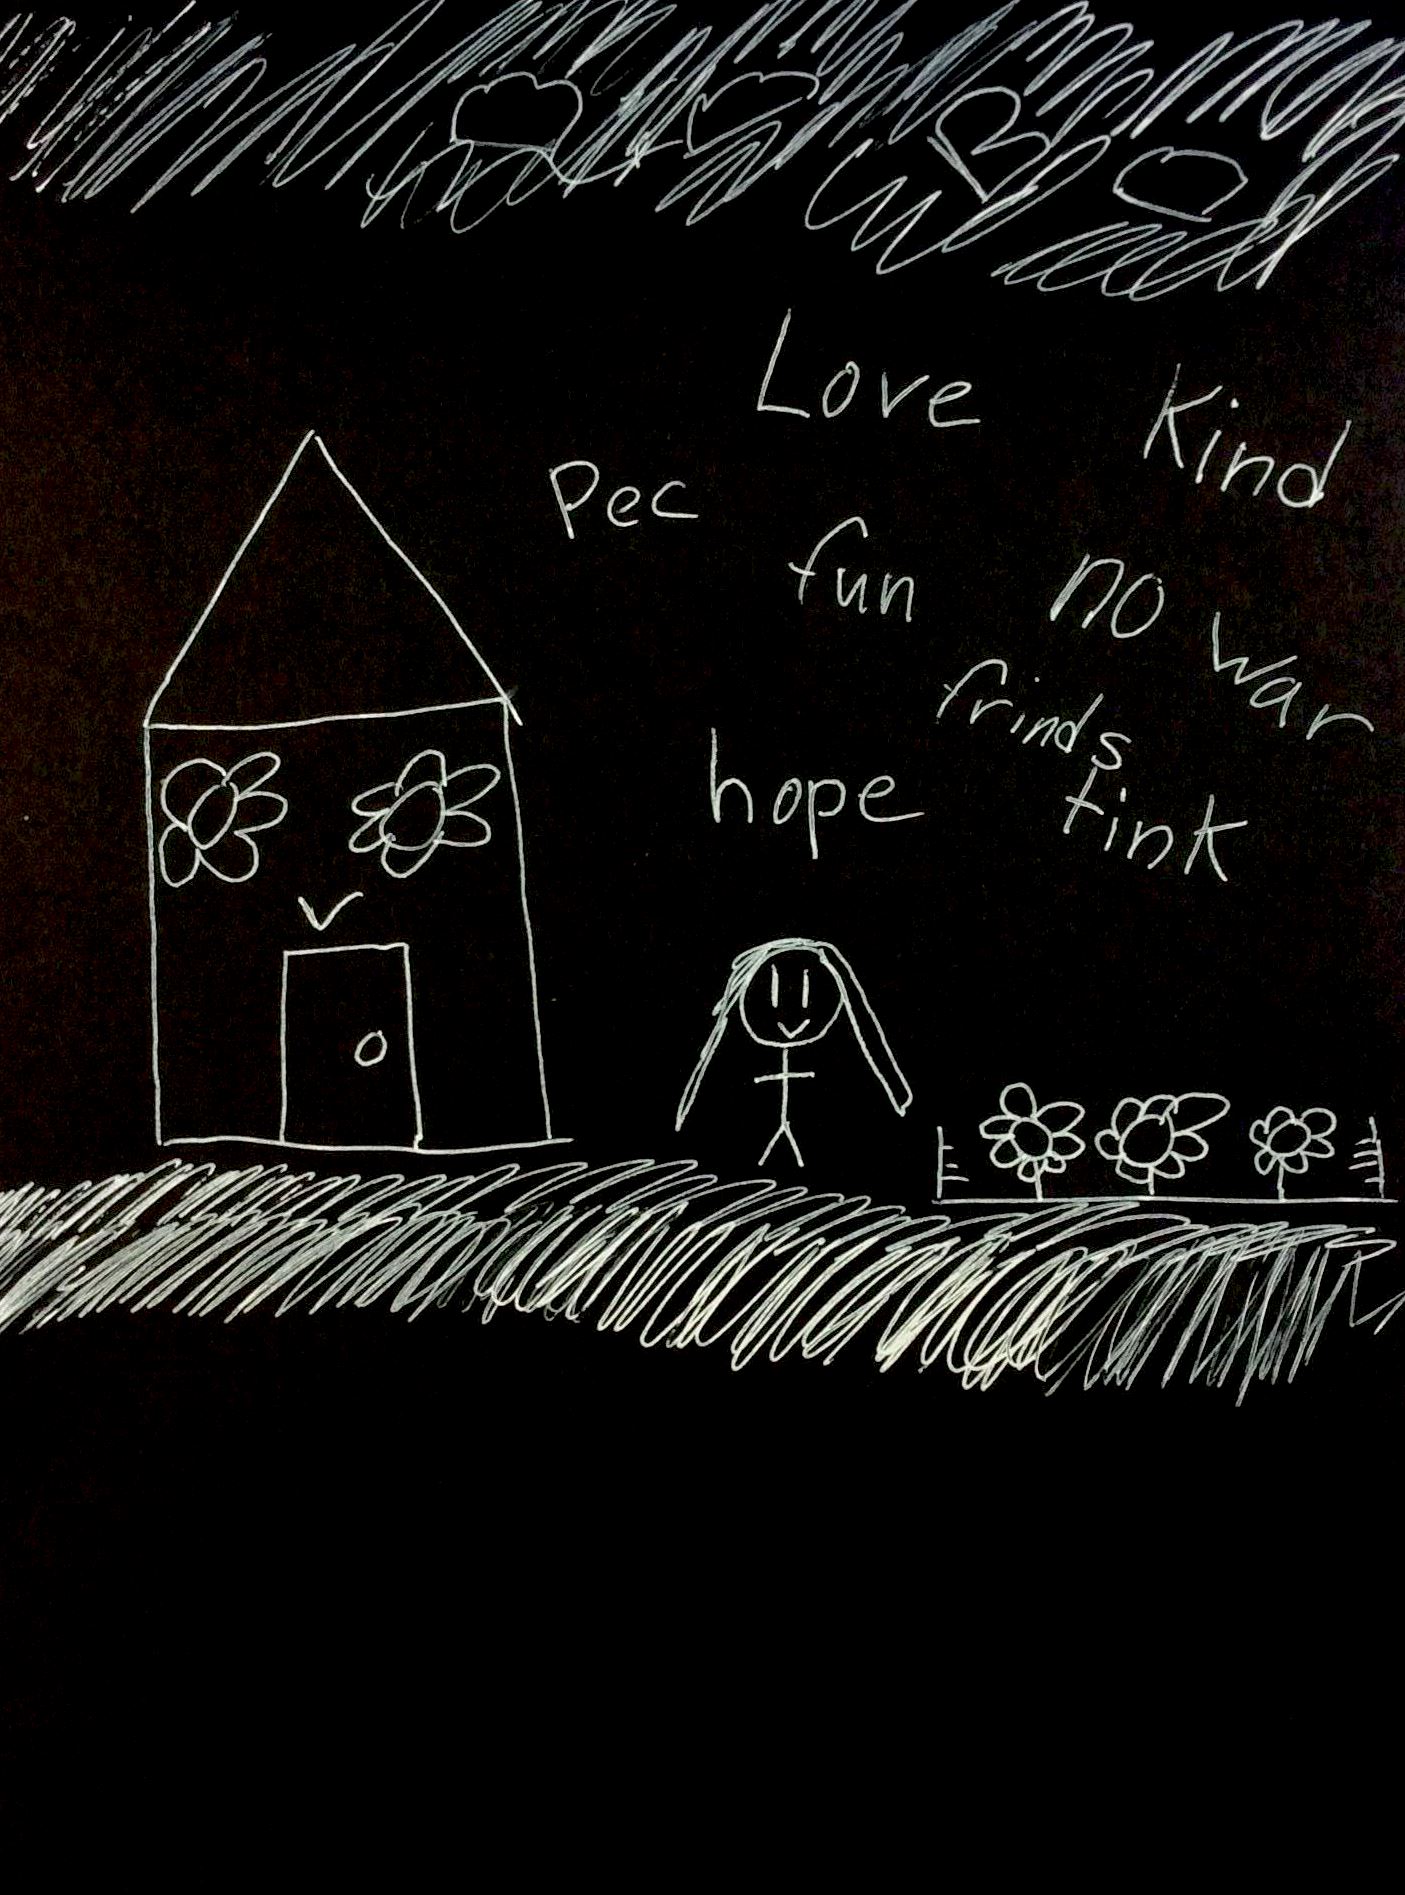 Love Kind
Pec
fun no war
frinds
hope tink